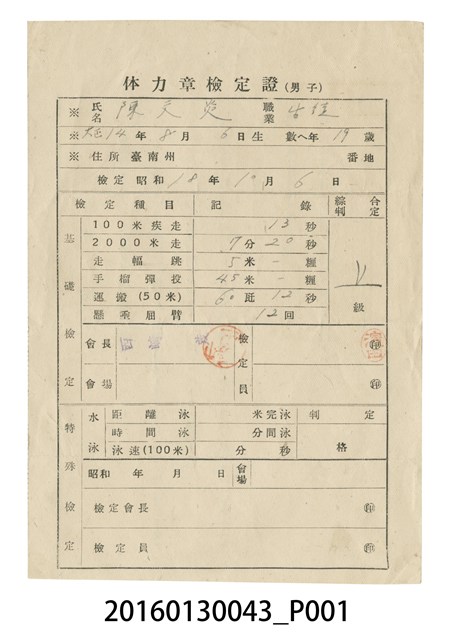 体力章檢定證(男子)
※ 氏名 陳天 職業
※ 大正14年8月6日生 數へ年19歲
※ 住所臺南州 番地
檢定昭和18年10月6日
檢定種目 記錄 綜合判定
基礎檢定
100米疾走 13秒
2000米走 7分20秒
走幅跳 5米-糎
手榴彈投 45米-糎
運搬(50米) 60瓩12秒
懸垂屈臂 12回
級
會長 檢定員 ㊞
會場 ㊞
特殊檢定
水泳 距離泳 米完泳 判定
時間泳 分間泳
泳速(100米) 分秒 格
昭和 年 月 日 會場
檢定會長 ㊞
檢定員 ㊞
20160130043_P001